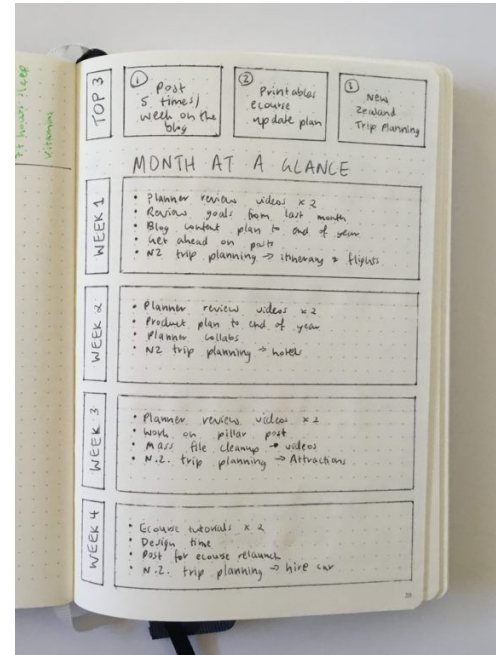 7+ hours sleep
Vitamins
TOP 3
1
Post
5 times/
week on the
blog
2
Printables
ecourse
update plan
3
New
Zealand
Trip Planning
MONTH AT A GLANCE
WEEK 1
• Planner review videos x 2
• Review goals from last month
• Blog content plan to end of year
• Get ahead on posts
• NZ trip planning → itinerary & flights
WEEK 2
• Planner review videos x 2
• Product plan to end of year
• Planner collabs
• NZ trip planning → hotels
WEEK 3
• Planner review videos x 2
• Work on pillar post
• Mass file cleanup → videos
• N.Z. trip planning → Attractions
WEEK 4
• Ecourse tutorials x 2
• Design time
• Post for ecourse relaunch
• N.Z. trip planning → hire car